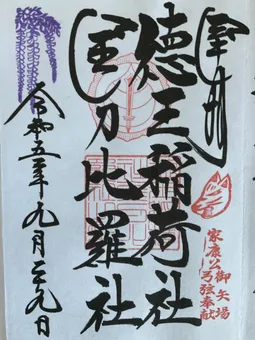 徳王稲荷社
金刀比羅社
家康公御矢場
弓弦奉献
令和五年九月二十九日